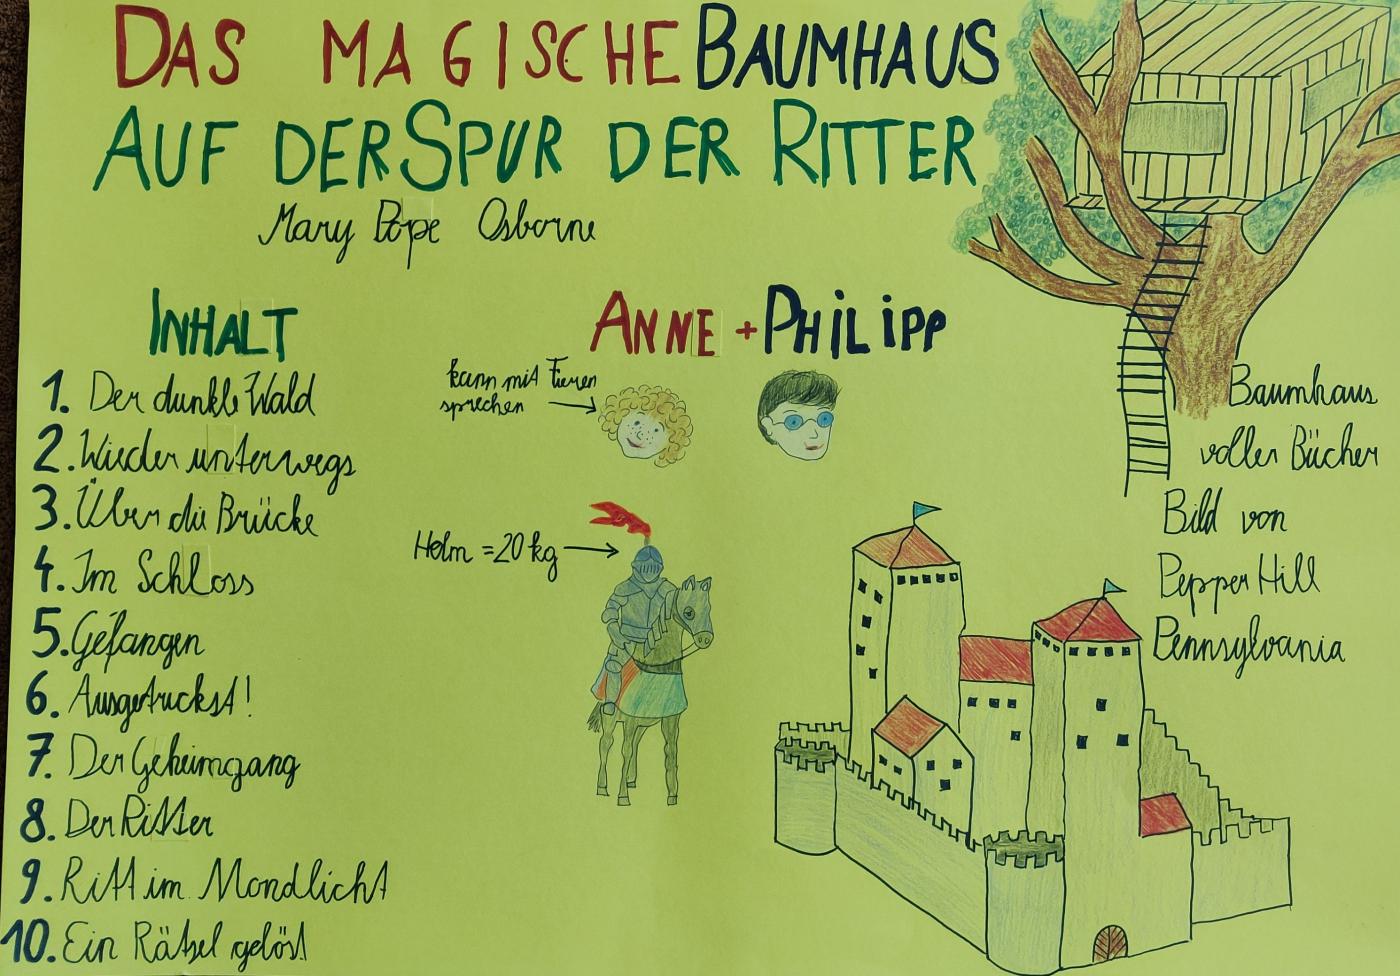 DAS MAGISCHE BAUMHAUS
AUF DER SPUR DER RITTER
Mary Pope Osborne
INHALT
1. Der dunkle Wald
2. Wieder unterwegs
3. Über die Brücke
4. Im Schloss
5. Gefangen
6. Ausgetrickst!
7. Der Geheimgang
8. Der Ritter
9. Ritt im Mondlicht
10. Ein Rätsel gelöst
ANNE + PHILIPP
kann mit Tieren
sprechen
Helm = 20 kg
Baumhaus
voller Bücher
Bild von
Pepper Hill
Pennsylvania